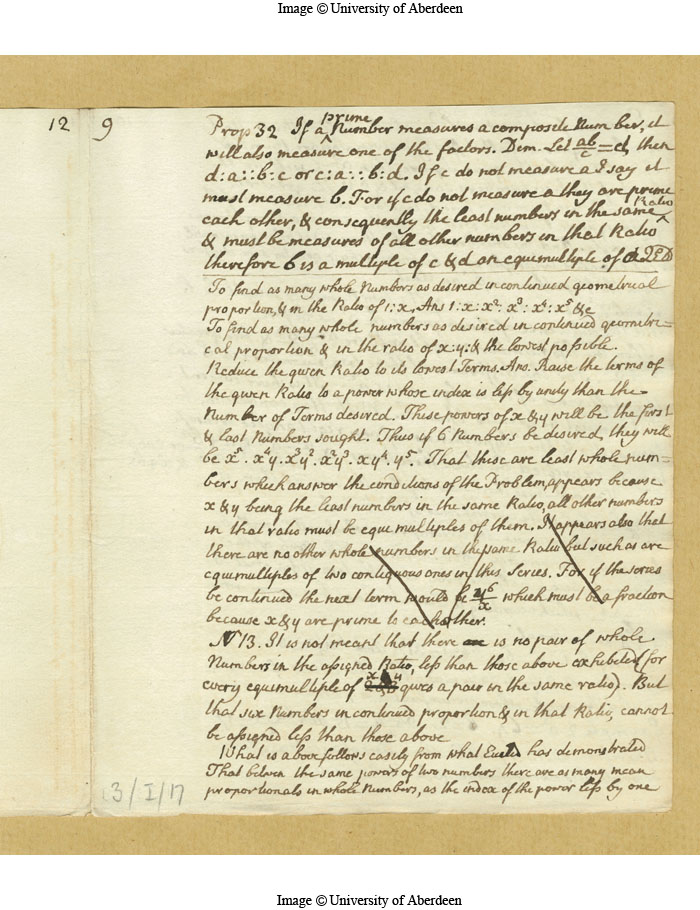 Image © University of Aberdeen
12 9
Prop 32 If a prime Number measures a composite Number, it
will also measure one of the factors. Dem. Let ab/c = d, then
d : a :: b : c or c : a :: b : d. If c do not measure a I say it
must measure b. For if c do not measure a they are prime
each other, & consequently the least numbers in the same Ratio
& must be measures of all other numbers in that Ratio
therefore b is a multiple of c & d an equimultiple of a QED
To find as many whole Numbers as desired in continued geometrical
proportion, & in the Ratio of 1 : x. Ans 1 : x : x² : x³ : x⁴ : x⁵ &c
To find as many whole numbers as desired in continued geometri=
cal proportion & in the ratio of x : y : & the lowest possible.
Reduce the given Ratio to its lowest Terms. Ans. Raise the terms of
the given Ratio to a power whose index is less by unity than the
Number of Terms desired. These powers of x & y will be the first
& last Numbers sought. Thus if 6 Numbers be desired, they will
be x⁵ . x⁴y . x³y² . x²y³ . xy⁴ . y⁵. That these are least whole num=
bers which answer the conditions of the Problem, appears because
x & y being the least numbers in the same Ratio, all other numbers
in that ratio must be equimultiples of them. It appears also that
there are no other whole numbers in the same Ratio but such as are
equimultiples of two contiguous ones in this Series. For if the series
be continued the next term would be y⁶/x which must be a fraction
because x & y are prime to each other.
N 13. It is not meant that there is no pair of whole
Numbers in the assigned Ratio, less than those above exhibited (for
every equimultiple of x & y gives a pair in the same ratio). But
that six Numbers in continued proportion & in that Ratio, cannot
be assigned less than those above
What is above follows easily from what Euclid has demonstrated
That between the same powers of two numbers there are as many mean
proportionals in whole Numbers, as the index of the power less by one
3/I/17
Image © University of Aberdeen